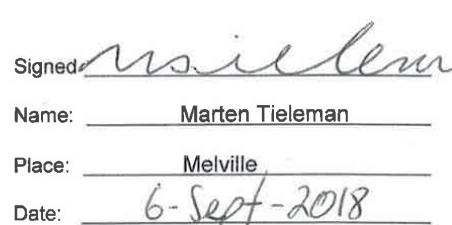 Signed
Name: Marten Tieleman
Place: Melville
Date: 6-Sept-2018